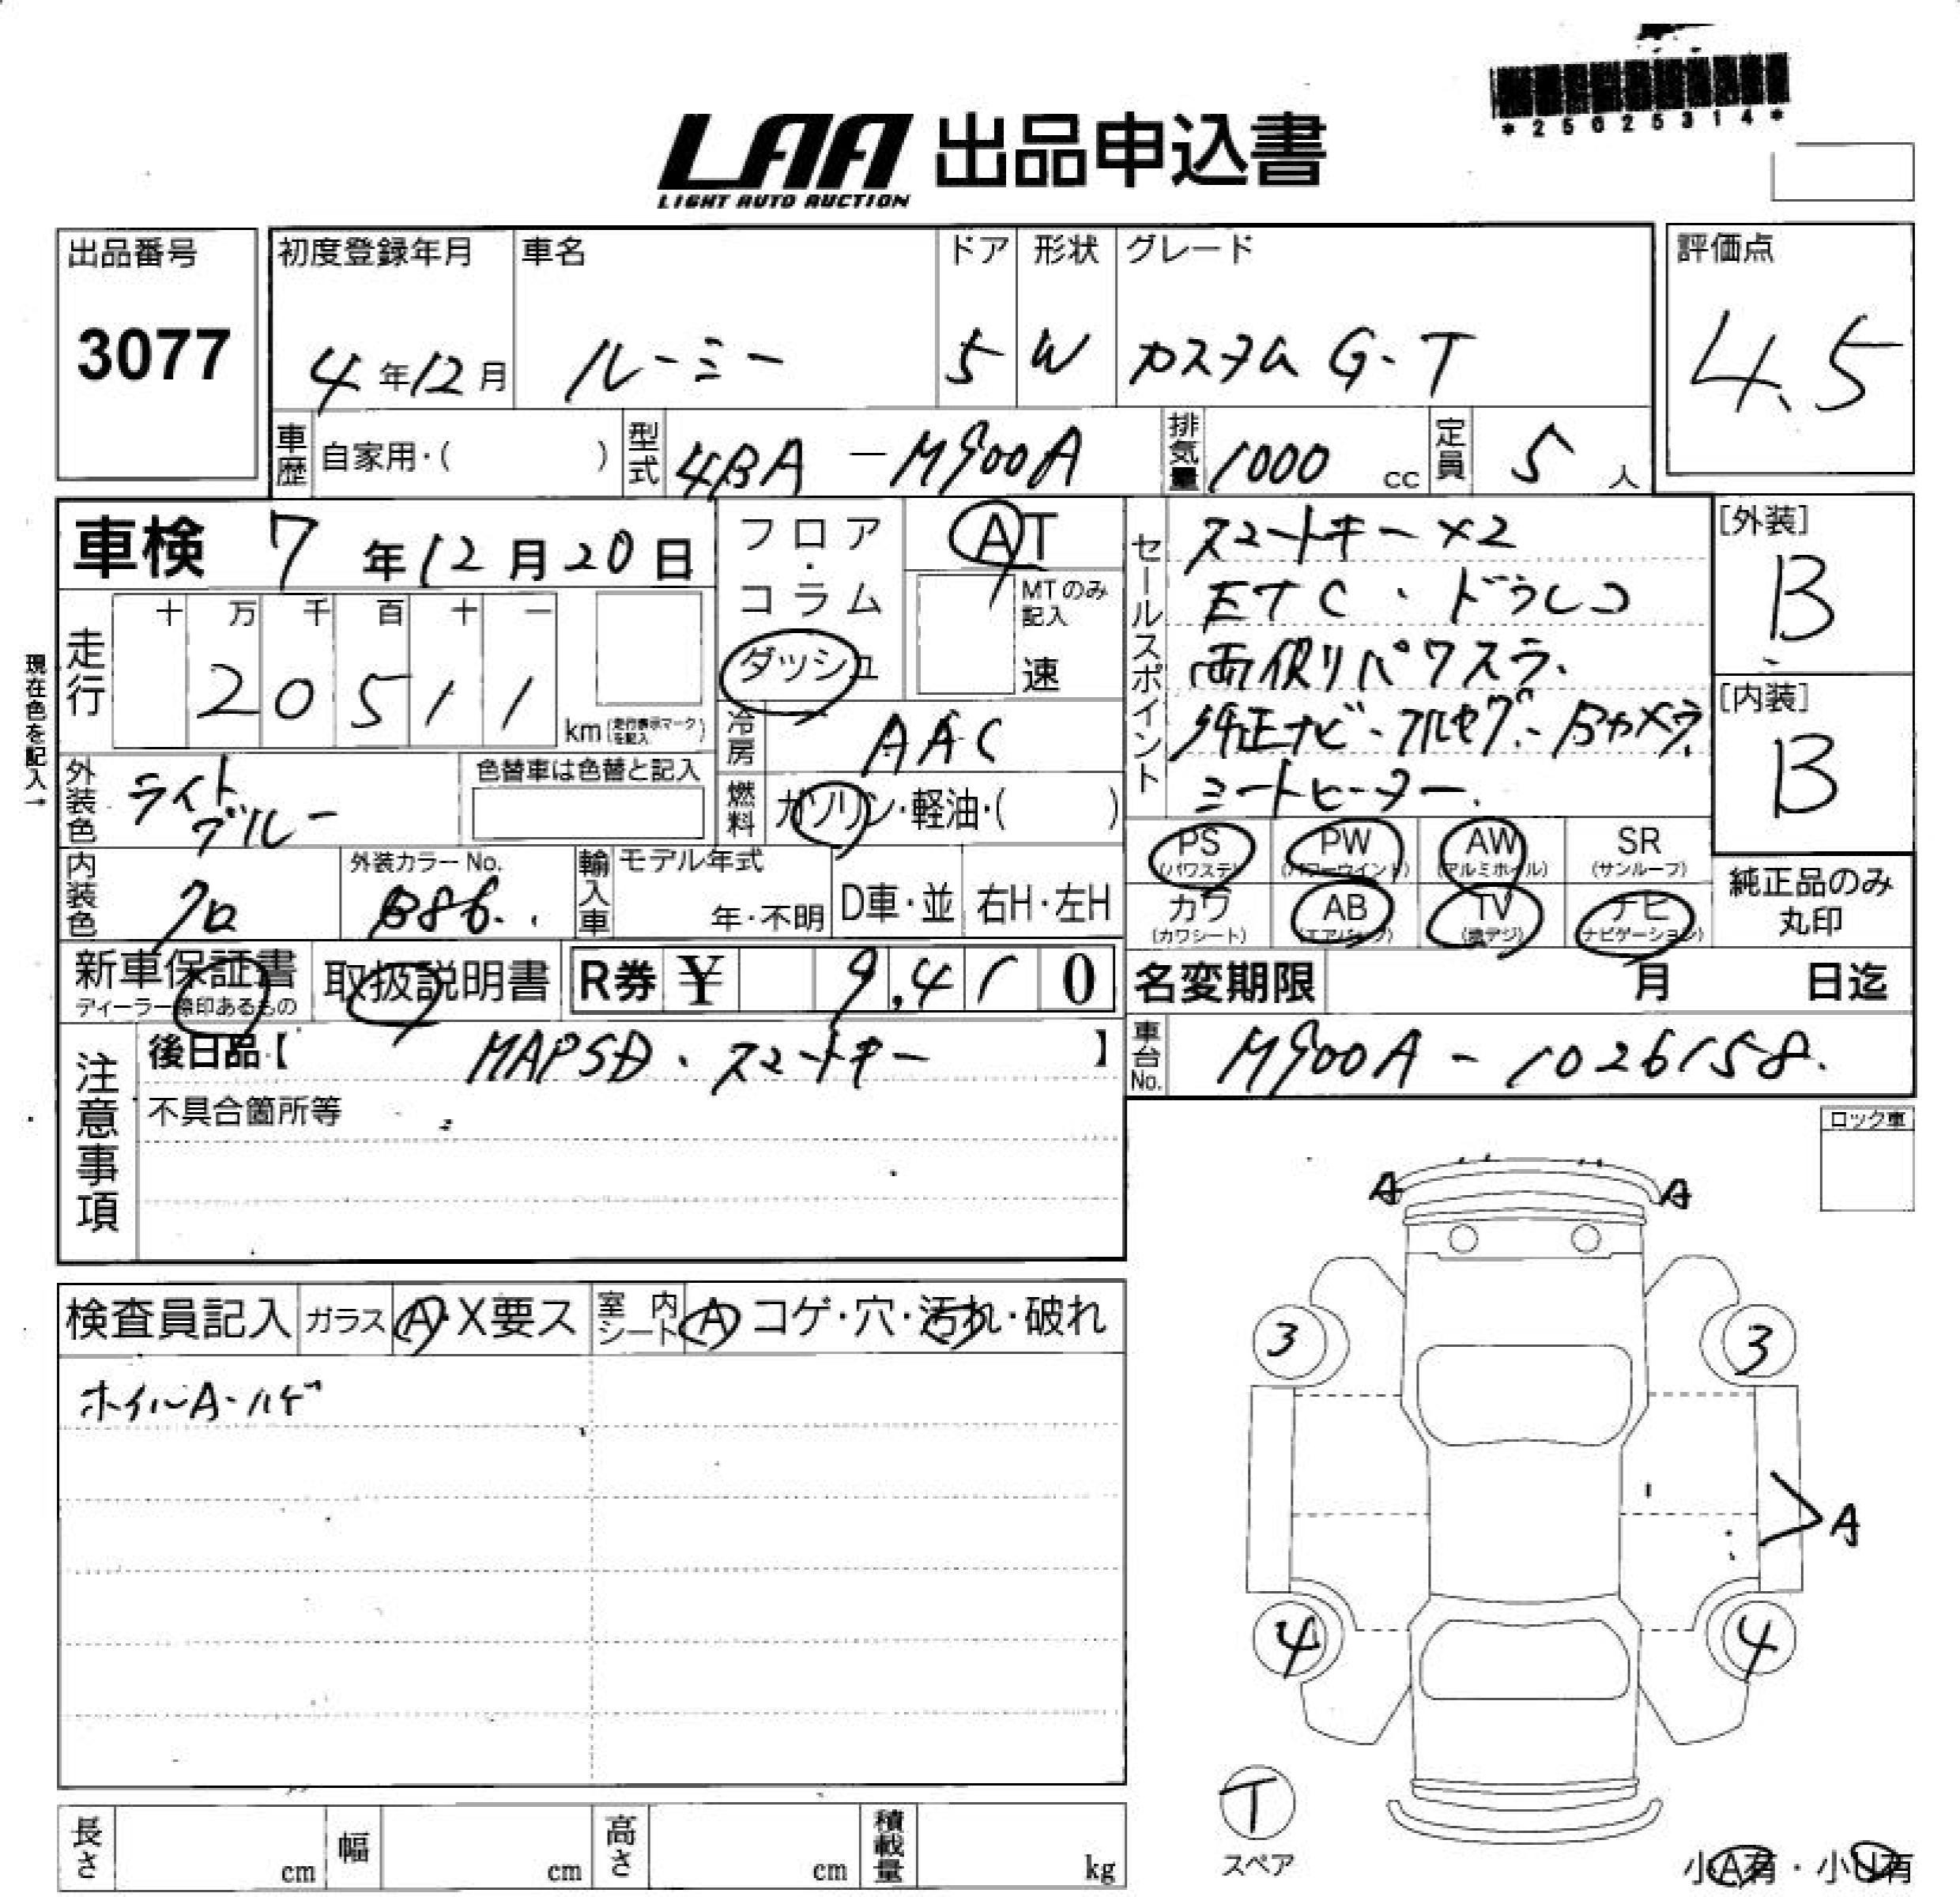 *25025314*
LAA 出品申込書
LIGHT AUTO AUCTION
出品番号 初度登録年月 車名 ドア 形状 グレード 評価点
3077 4年12月 ルーミー 5 W カスタム G-T 4.5
車歴 自家用・( ) 型式 4BA-M900A 排気量 1000 cc 定員 5 人
車検 7年12月20日 フロア・コラム AT
ダッシュ MTのみ記入 速
現在色を記入→
走行 十 万 千 百 十 一
2 0 5 1 1 km (走行表示マークを記入)
冷房 AAC
外装色 ライトブルー 色替車は色替と記入
燃料 ガソリン・軽油・( )
内装色 クロ 外装カラーNo. B86. 輸入車 モデル年式 年・不明 D車・並 右H・左H
セールスポイント
スマートキー×2
ETC・ドラレコ
両側パワスラ.
純正ナビ・フルセグ・Bカメラ.
シートヒーター.
[外装] B
[内装] B
PS (パワステ) PW (パワーウインド) AW (アルミホイル) SR (サンルーフ)
カワ (カワシート) AB (エアバッグ) TV (地デジ) ナビ (ナビゲーション)
純正品のみ丸印
新車保証書 ディーラー捺印あるもの 取扱説明書 R券 ¥ 9,410
名変期限 月 日迄
注意事項
後日品【 MAPSD・スマートキー 】
車台No. M900A-1026158.
不具合箇所等
ロック車
A A
3 3
A
4 4
検査員記入 ガラス A・X要ス 室内シート A コゲ・穴・汚れ・破れ
ホイルA・ハゲ
T
スペア
小A有・小U有
長さ cm 幅 cm 高さ cm 積載量 kg